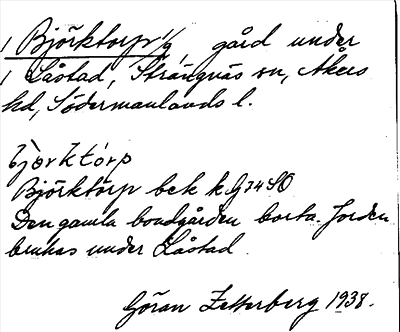 Björktorp 1/9, gård under
Låstad, Strängnäs sn, Åkers
hd, Södermanlands l.
bjo̤rktorp
Björktorp bek k G 74 SO
Den gamla boudgården borta. Jorden
brukas under Låstad.
Göran Zetterberg 1938.